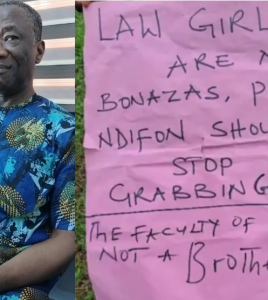 LAW GIRL
ARE
BONAZAS, P
NDIFON SHOU
STOP
GRABBING
THE FACULTY OF
NOT A Brothe